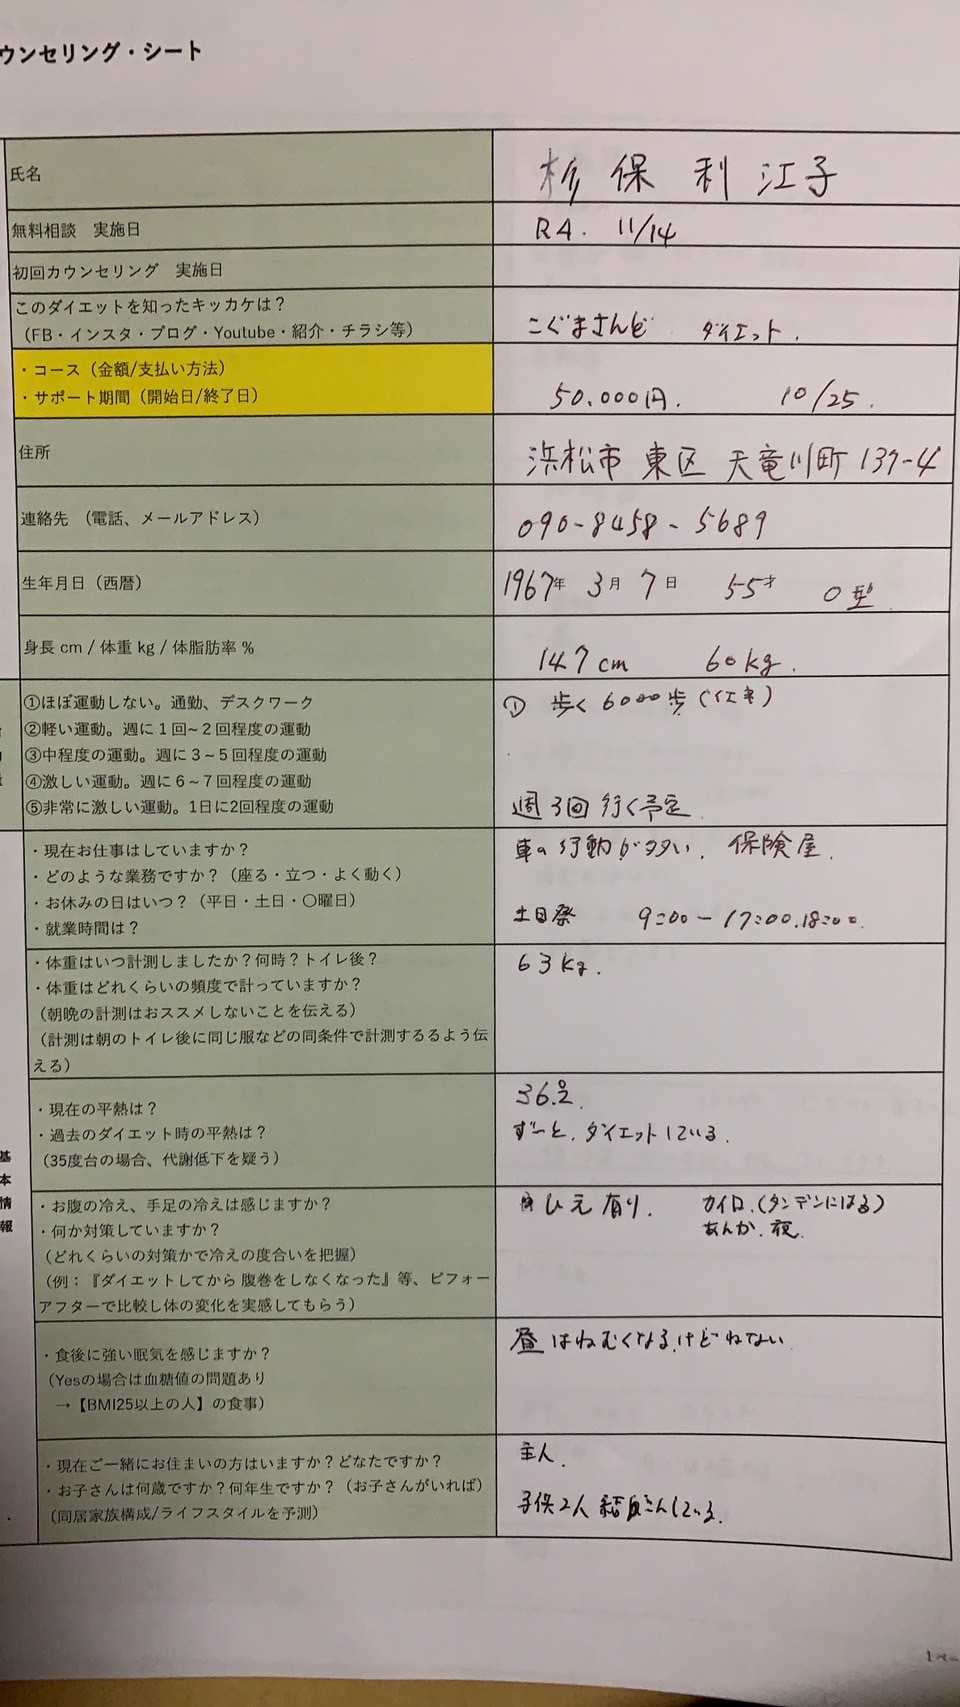 ウンセリング・シート
氏名
杉保 利江子
無料相談 実施日
R4. 11/14
初回カウンセリング 実施日
このダイエットを知ったキッカケは？
（FB・インスタ・ブログ・Youtube・紹介・チラシ等）
こぐまさんど ダイエット.
・コース（金額/支払い方法）
・サポート期間（開始日/終了日）
50.000円. 10/25.
住所
浜松市 東区 天竜川町 137-4
連絡先 （電話、メールアドレス）
090-8458-5689
生年月日（西暦）
1967年 3月 7日 55才 O型
身長 cm / 体重 kg / 体脂肪率 %
147cm 60kg.
①ほぼ運動しない。通勤、デスクワーク
②軽い運動。週に1回~2回程度の運動
③中程度の運動。週に3~5回程度の運動
④激しい運動。週に6~7回程度の運動
⑤非常に激しい運動。1日に2回程度の運動
① 歩く 6000歩
週3回 行く予定
・現在お仕事はしていますか？
・どのような業務ですか？（座る・立つ・よく動く）
・お休みの日はいつ？（平日・土日・〇曜日）
・就業時間は？
車の行動が多い. 保険屋.
土日祭 9:00ー17:00.18:00.
・体重はいつ計測しましたか？何時？トイレ後？
・体重はどれくらいの頻度で計っていますか？
（朝晩の計測はおススメしないことを伝える）
（計測は朝のトイレ後に同じ服などの同条件で計測するるよう伝
える）
63kg.
基本情報
・現在の平熱は？
・過去のダイエット時の平熱は？
（35度台の場合、代謝低下を疑う）
ずーと.ダイエットしている.
・お腹の冷え、手足の冷えは感じますか？
・何か対策していますか？
（どれくらいの対策かで冷えの度合いを把握）
（例：『ダイエットしてから 腹巻をしなくなった』等、ビフォー
アフターで比較し体の変化を実感してもらう）
ひえ有り. カイロ.(タンデンにはる)
あんか.夜.
・食後に強い眠気を感じますか？
（Yesの場合は血糖値の問題あり
→【BMI25以上の人】の食事）
昼はねむくなる.けどねない
・現在ご一緒にお住まいの方はいますか？どなたですか？
・お子さんは何歳ですか？何年生ですか？（お子さんがいれば）
（同居家族構成/ライフスタイルを予測）
主人.
子供2人 結こんしている.